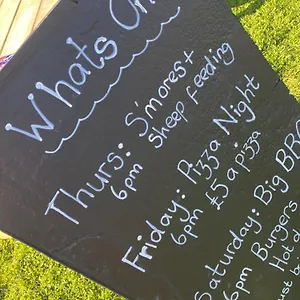 Whats On
Thurs: S'mores +
6pm sheep feeding
Friday: Pizza Night
6pm £5 a pizza
Saturday: Big
6pm Burgers
Hot